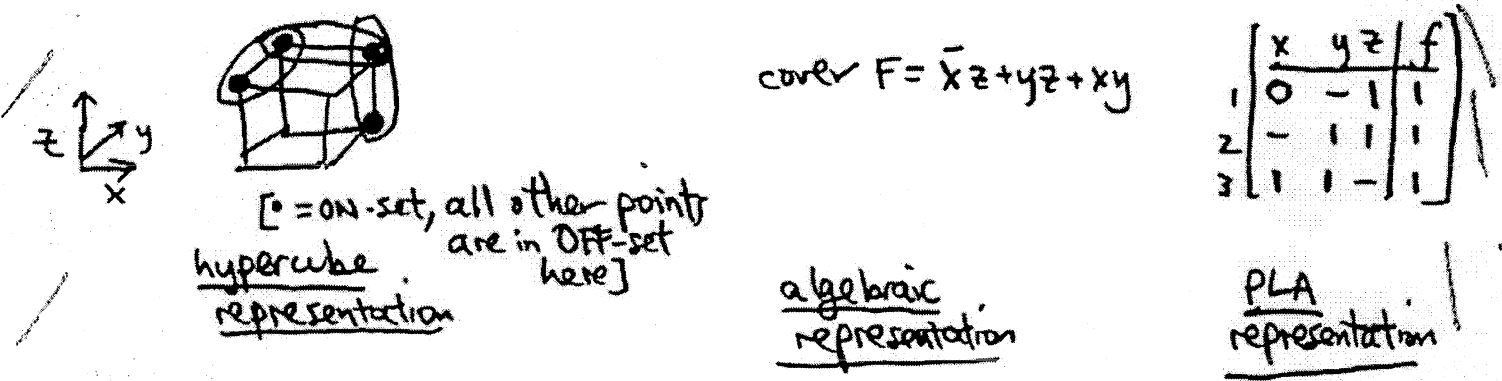 z
y
x
[• = ON-set, all other points
are in OFF-set
here]
hypercube
representation
cover F = x̄z + yz + xy
algebraic
representation
x y z | f
1 0 - 1 | 1
2 - 1 1 | 1
3 1 1 - | 1
PLA
representation